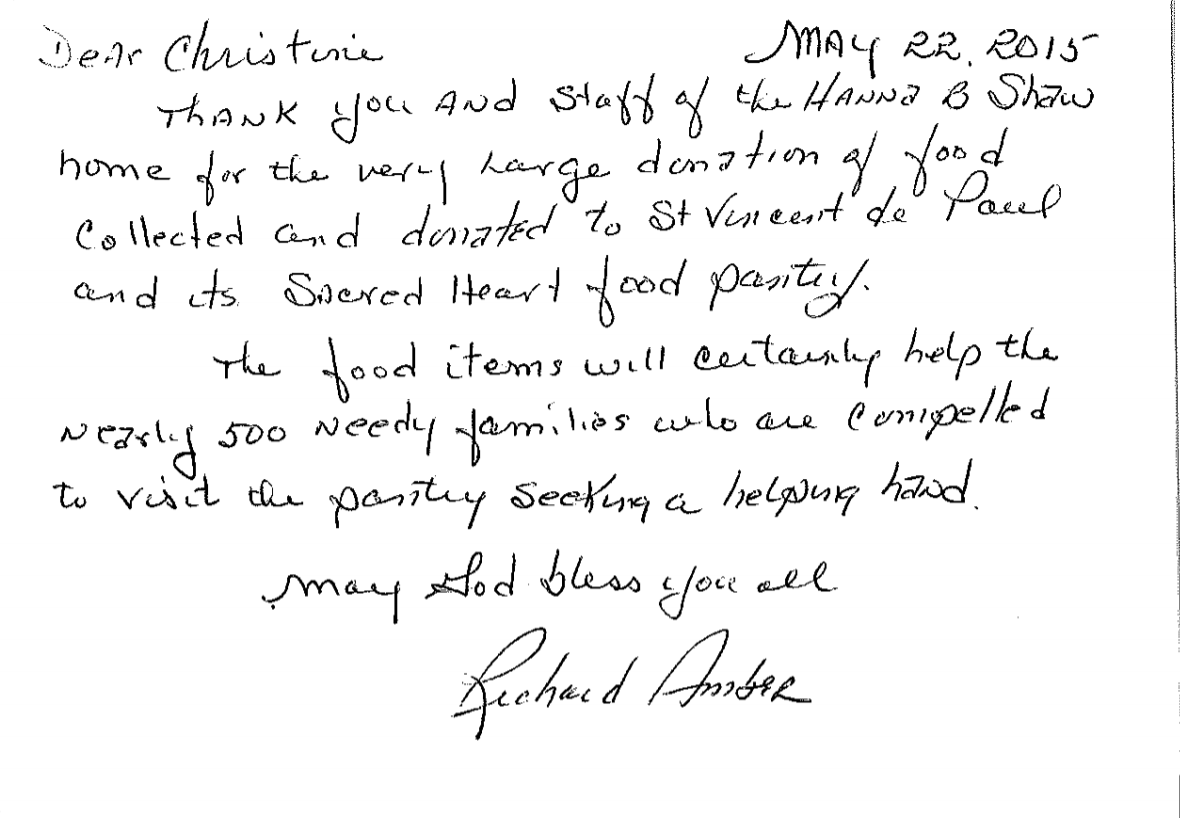 Dear Christine MAY 22, 2015
THANK you AND Staff of the HANNA B Shaw
home for the very large donation of food
Collected and donated to St Vincent de Paul
and its Sacred Heart food pantry.
The food items will certainly help the
Nearly 500 Needy families who are compelled
to visit the pantry Seeking a helping hand.
may God bless you all
Richard Amber